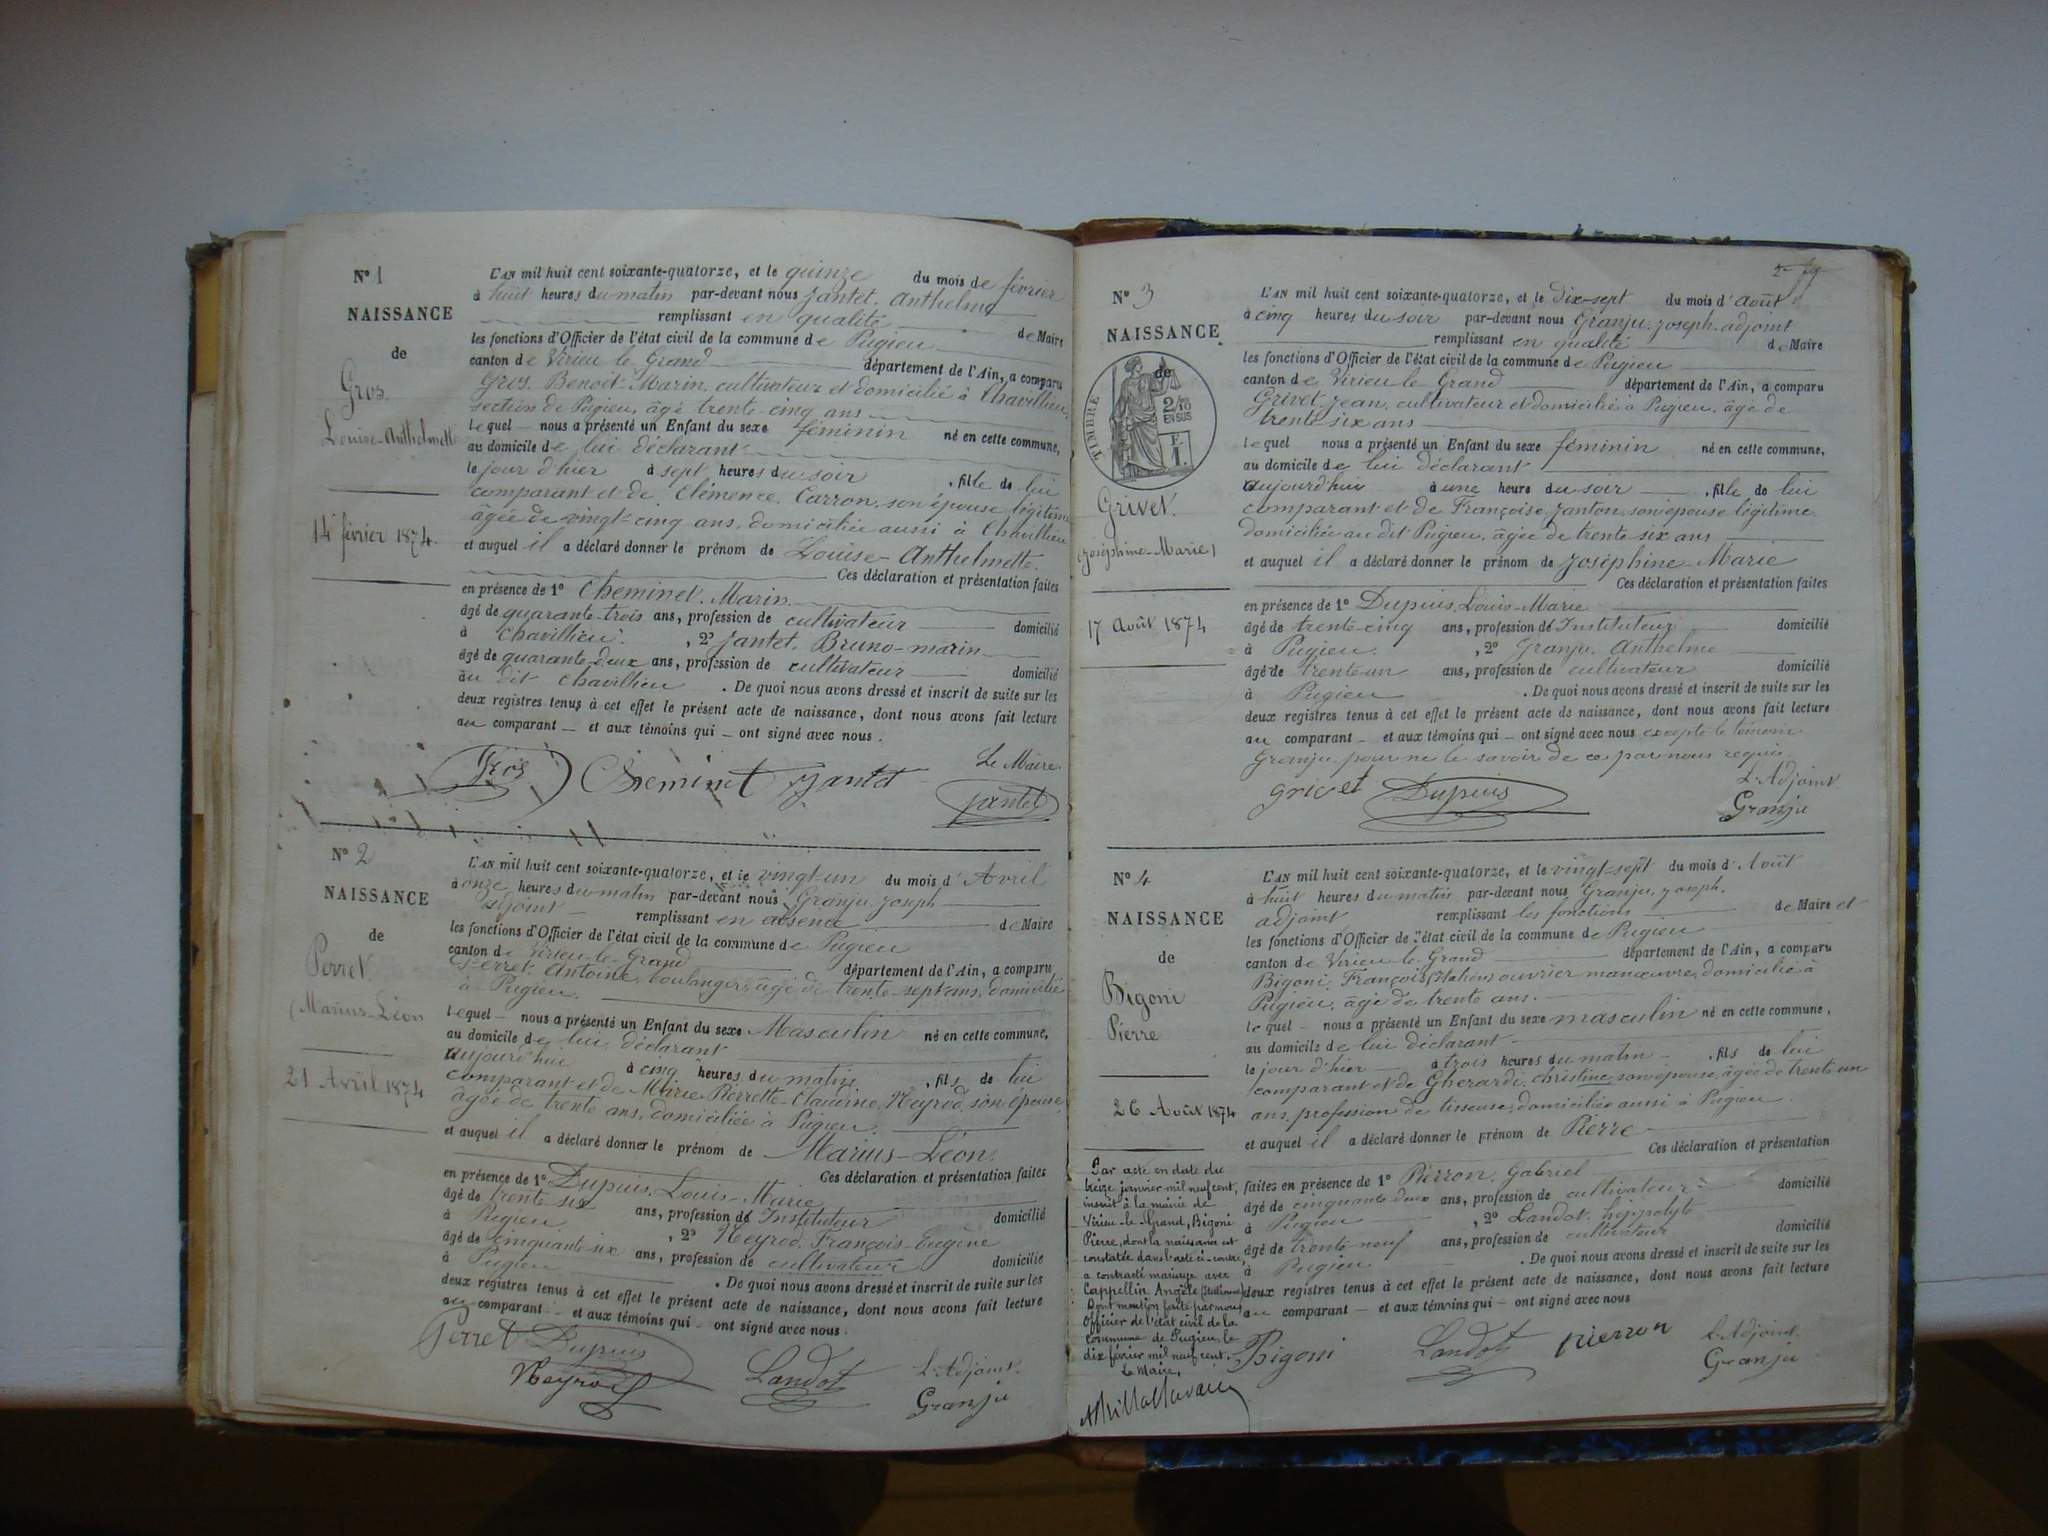 N° 1
NAISSANCE
de
Gros
Louise-Anthelmette
14 février 1874
L'AN mil huit cent soixante-quatorze, et le quinze du mois de février
à huit heures du matin par-devant nous Jantet, Anthelme
remplissant en qualité de Maire
les fonctions d'Officier de l'état civil de la commune de Pugieu
canton de Virieu le Grand département de l'Ain, a comparu
Gros, Benoit-Marin, cultivateur et domicilié à Chavillieu,
section de Pugieu, âgé trente-cinq ans
lequel nous a présenté un Enfant du sexe féminin né en cette commune,
au domicile de lui déclarant
le jour d'hier à sept heures du soir , fille de lui
comparant et de Clémence Carron, son épouse légitime
âgée de vingt-cinq ans, domiciliée aussi à Chavillieu
et auquel il a déclaré donner le prénom de Louise-Anthelmette.
Ces déclaration et présentation faites
en présence de 1° Cheminet, Marin
âgé de quarante-trois ans, profession de cultivateur domicilié
à Chavillieu , 2° Jantet, Bruno-marin
âgé de quarante-deux ans, profession de cultivateur domicilié
au dit Chavillieu . De quoi nous avons dressé et inscrit de suite sur les
deux registres tenus à cet effet le présent acte de naissance, dont nous avons fait lecture
au comparant et aux témoins qui ont signé avec nous.
Gros Cheminet Jantet Le Maire
Jantet
N° 2
NAISSANCE
de
Perret
(Marius-Léon
21 Avril 1874
L'AN mil huit cent soixante-quatorze, et le vingt-un du mois d'Avril
à onze heures du matin par-devant nous Granju, Joseph
adjoint remplissant en absence de Maire
les fonctions d'Officier de l'état civil de la commune de Pugieu
canton de Virieu-le-Grand département de l'Ain, a comparu
Perret, Antoine, boulanger, âgé de trente-sept ans, domicilié
à Pugieu.
lequel nous a présenté un Enfant du sexe Masculin né en cette commune,
au domicile de lui déclarant
aujourd'hui à cinq heures du matin , fils de lui
comparant et de Marie Pierrette-Claudine Neyrod, son épouse,
âgée de trente ans, domiciliée à Pugieu
et auquel il a déclaré donner le prénom de Marius-Léon.
Ces déclaration et présentation faites
en présence de 1° Dupuis, Louis-Marie
âgé de trente six ans, profession de Instituteur domicilié
à Pugieu , 2° Neyrod, François-Eugène
âgé de cinquante-six ans, profession de cultivateur domicilié
à Pugieu . De quoi nous avons dressé et inscrit de suite sur les
deux registres tenus à cet effet le présent acte de naissance, dont nous avons fait lecture
au comparant et aux témoins qui ont signé avec nous.
Perret Dupuis
Neyrod Landot L'Adjoint
Granju
N° 3
NAISSANCE
de
TIMBRE
2/10
EN SUS
Grivet
(Joséphine-Marie)
17 Août 1874
L'AN mil huit cent soixante-quatorze, et le dix-sept du mois d'Août
à cinq heures du soir par-devant nous Granju, Joseph, adjoint
remplissant en qualité de Maire
les fonctions d'Officier de l'état civil de la commune de Pugieu
canton de Virieu le Grand département de l'Ain, a comparu
Grivet, Jean, cultivateur et domicilié à Pugieu, âgé de
trente six ans
lequel nous a présenté un Enfant du sexe féminin né en cette commune,
au domicile de lui déclarant
aujourd'hui à une heure du soir , fille de lui
comparant et de Françoise Janton, son épouse légitime
domiciliée au dit Pugieu, âgée de trente six ans
et auquel il a déclaré donner le prénom de Joséphine-Marie
Ces déclaration et présentation faites
en présence de 1° Dupuis, Louis-Marie
âgé de trente-cinq ans, profession de Instituteur domicilié
à Pugieu , 2° Granju, Anthelme
âgé de trente-un ans, profession de cultivateur domicilié
à Pugieu . De quoi nous avons dressé et inscrit de suite sur les
deux registres tenus à cet effet le présent acte de naissance, dont nous avons fait lecture
au comparant et aux témoins qui ont signé avec nous, excepté le témoin
Granju, pour ne le savoir de ce par nous requis.
grivet Dupuis L'Adjoint
Granju
N° 4
NAISSANCE
de
Bigoni
Pierre
26 Août 1874
L'AN mil huit cent soixante-quatorze, et le vingt-sept du mois d'Août
à huit heures du matin par-devant nous Granju, Joseph,
adjoint remplissant les fonctions de Maire et
les fonctions d'Officier de l'état civil de la commune de Pugieu
canton de Virieu le Grand département de l'Ain, a comparu
Bigoni, François (Italien) ouvrier manœuvre, domicilié à
Pugieu, âgé de trente ans.
lequel nous a présenté un Enfant du sexe masculin né en cette commune,
au domicile de lui déclarant
le jour d'hier à trois heures du matin , fils de lui
comparant et de Gherardi, Christine, son épouse, âgée de trente un
ans, profession de tisseuse, domiciliée aussi à Pugieu.
et auquel il a déclaré donner le prénom de Pierre
Ces déclaration et présentation
faites en présence de 1° Pierron, Gabriel
âgé de cinquante deux ans, profession de cultivateur domicilié
à Pugieu , 2° Landot, hippolyte
âgé de trente-neuf ans, profession de cultivateur domicilié
à Pugieu . De quoi nous avons dressé et inscrit de suite sur les
deux registres tenus à cet effet le présent acte de naissance, dont nous avons fait lecture
au comparant et aux témoins qui ont signé avec nous
Bigoni Landot pierron L'Adjoint
Granju
Par acte en date du
treize janvier mil neuf cent,
inscrit à la mairie de
Virieu-le-Grand, Bigoni
Pierre, dont la naissance est
constatée dans l'acte ci-contre,
a contracté mariage avec
Cappellin Angèle (Italienne)
Dont mention faite par nous
Officier de l'état civil de la
commune de Pugieu, le
dix février mil neuf cent.
Le Maire,